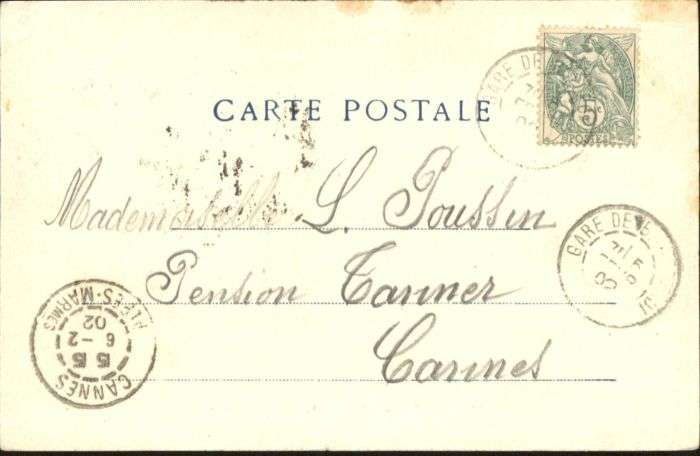 CARTE POSTALE
GARE DE
5c
POSTES
Mademoiselle L. Poussin
Pension Tanner
Cannes
GARE DE
CANNES
ALPES-MARMES
5 5
6 - 2
02